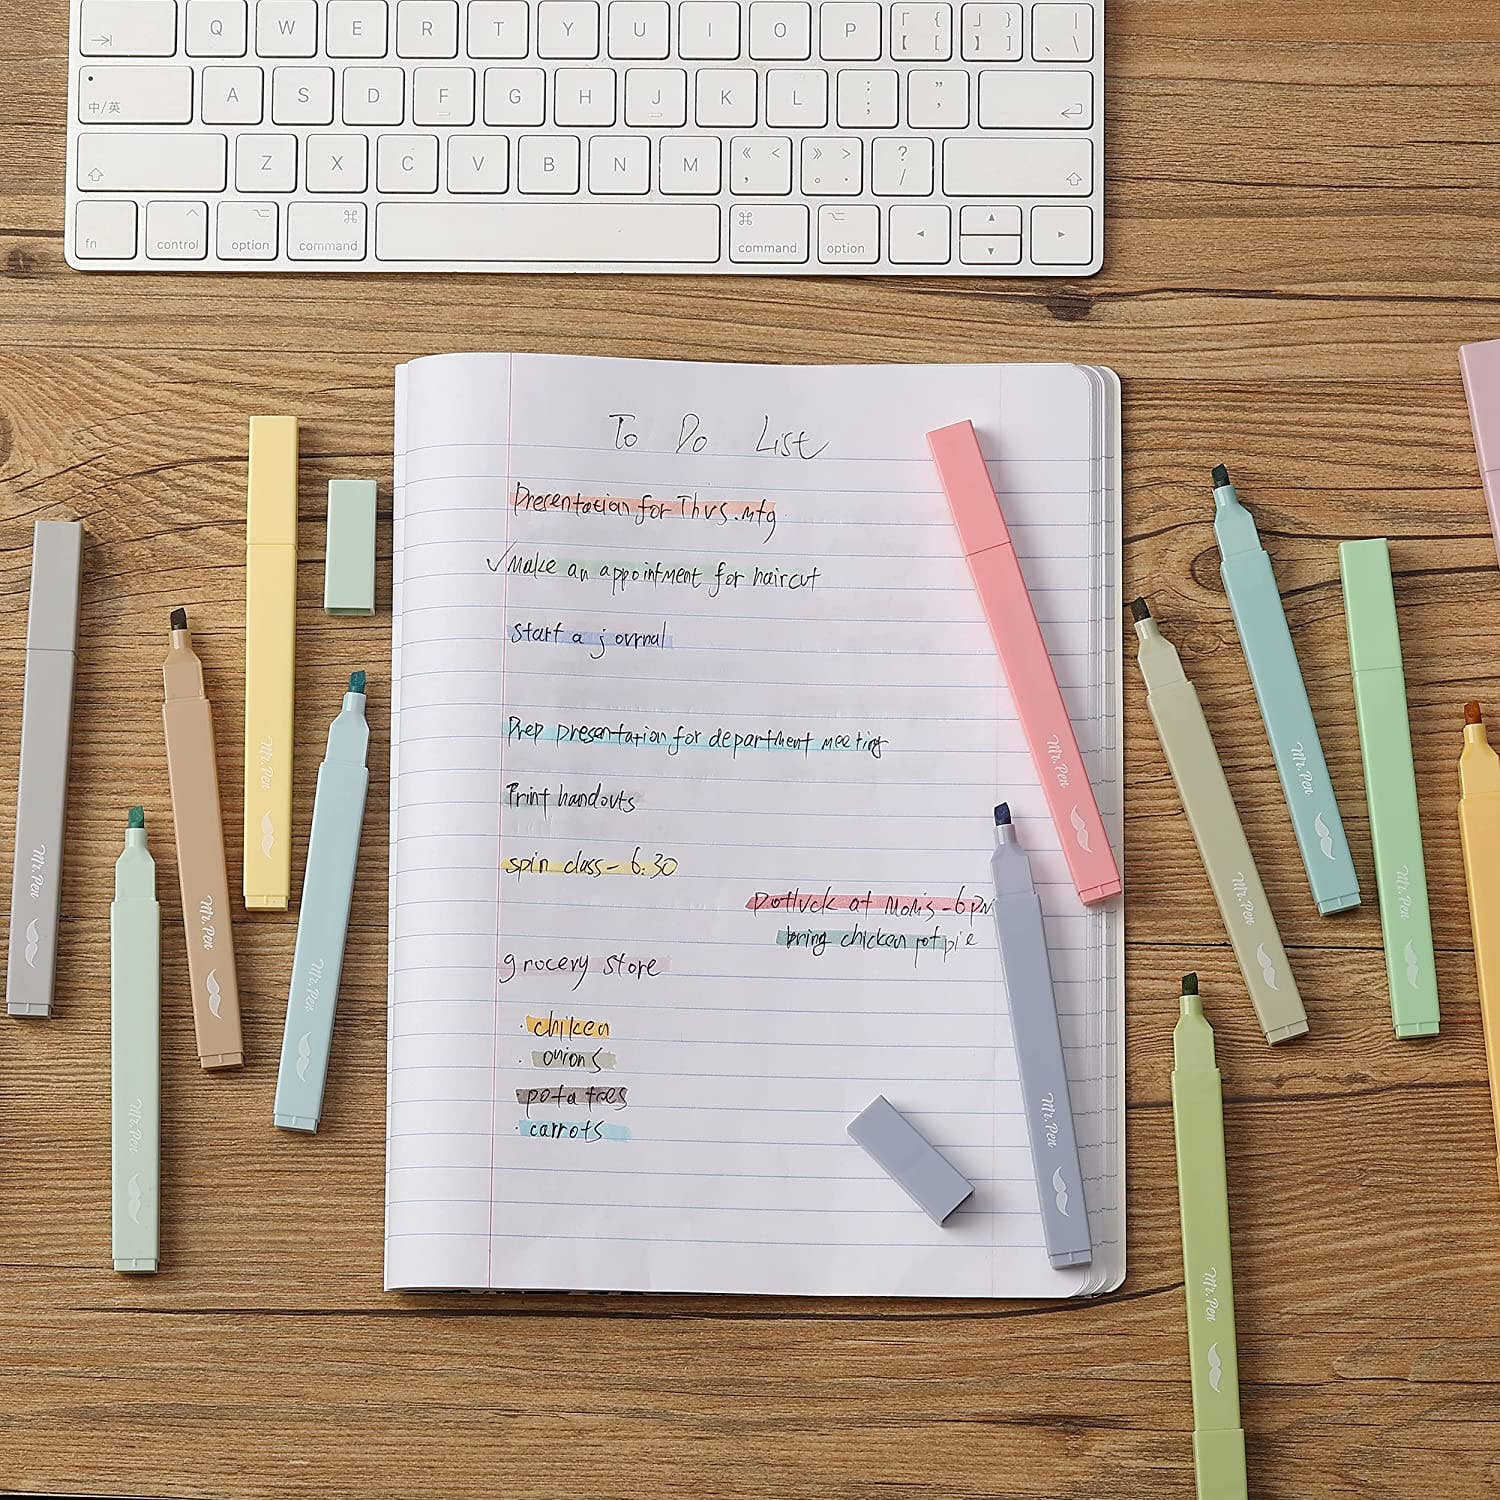 Q W E R T Y U I O P 「 { 【 [ 」 } 】 ] | 、 \
中/英 A S D F G H J K L : ; " '
Z X C V B N M 《 < , 》 > 。 . ? /
fn control option ⌘ command ⌘ command option
To Do List
Presentation for Thurs.mtg
✓Make an appointment for haircut
Start a journal
Prep presentation for department meeting
Print handouts
spin class - 6:30
potluck at Mom's - 6pm
bring chicken pot pie
grocery store
· chiken
· onions
· potatoes
· carrots
Mr. Pen
Mr. Pen
Mr. Pen
Mr. Pen
Mr. Pen
Mr. Pen
Mr. Pen
Mr. Pen
Mr. Pen
Mr. Pen
Mr. Pen